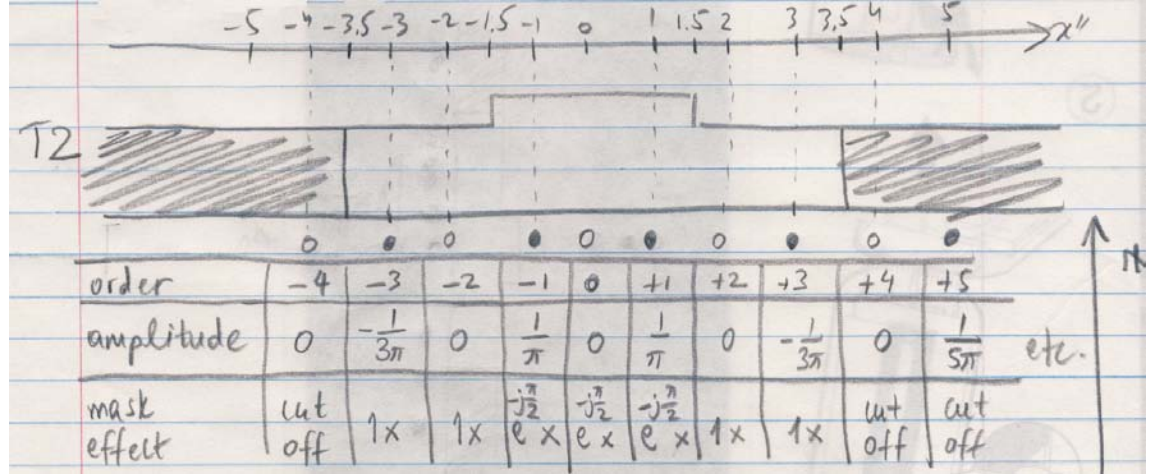 -5 -4 -3.5 -3 -2 -1.5 -1 0 1 1.5 2 3 3.5 4 5 x''
T2
order -4 -3 -2 -1 0 +1 +2 +3 +4 +5
amplitude 0 -1/3π 0 1/π 0 1/π 0 -1/3π 0 1/5π etc.
mask effect cut off 1x 1x e^{-jπ/2} x e^{-jπ/2} x e^{-jπ/2} x 1x 1x cut off cut off